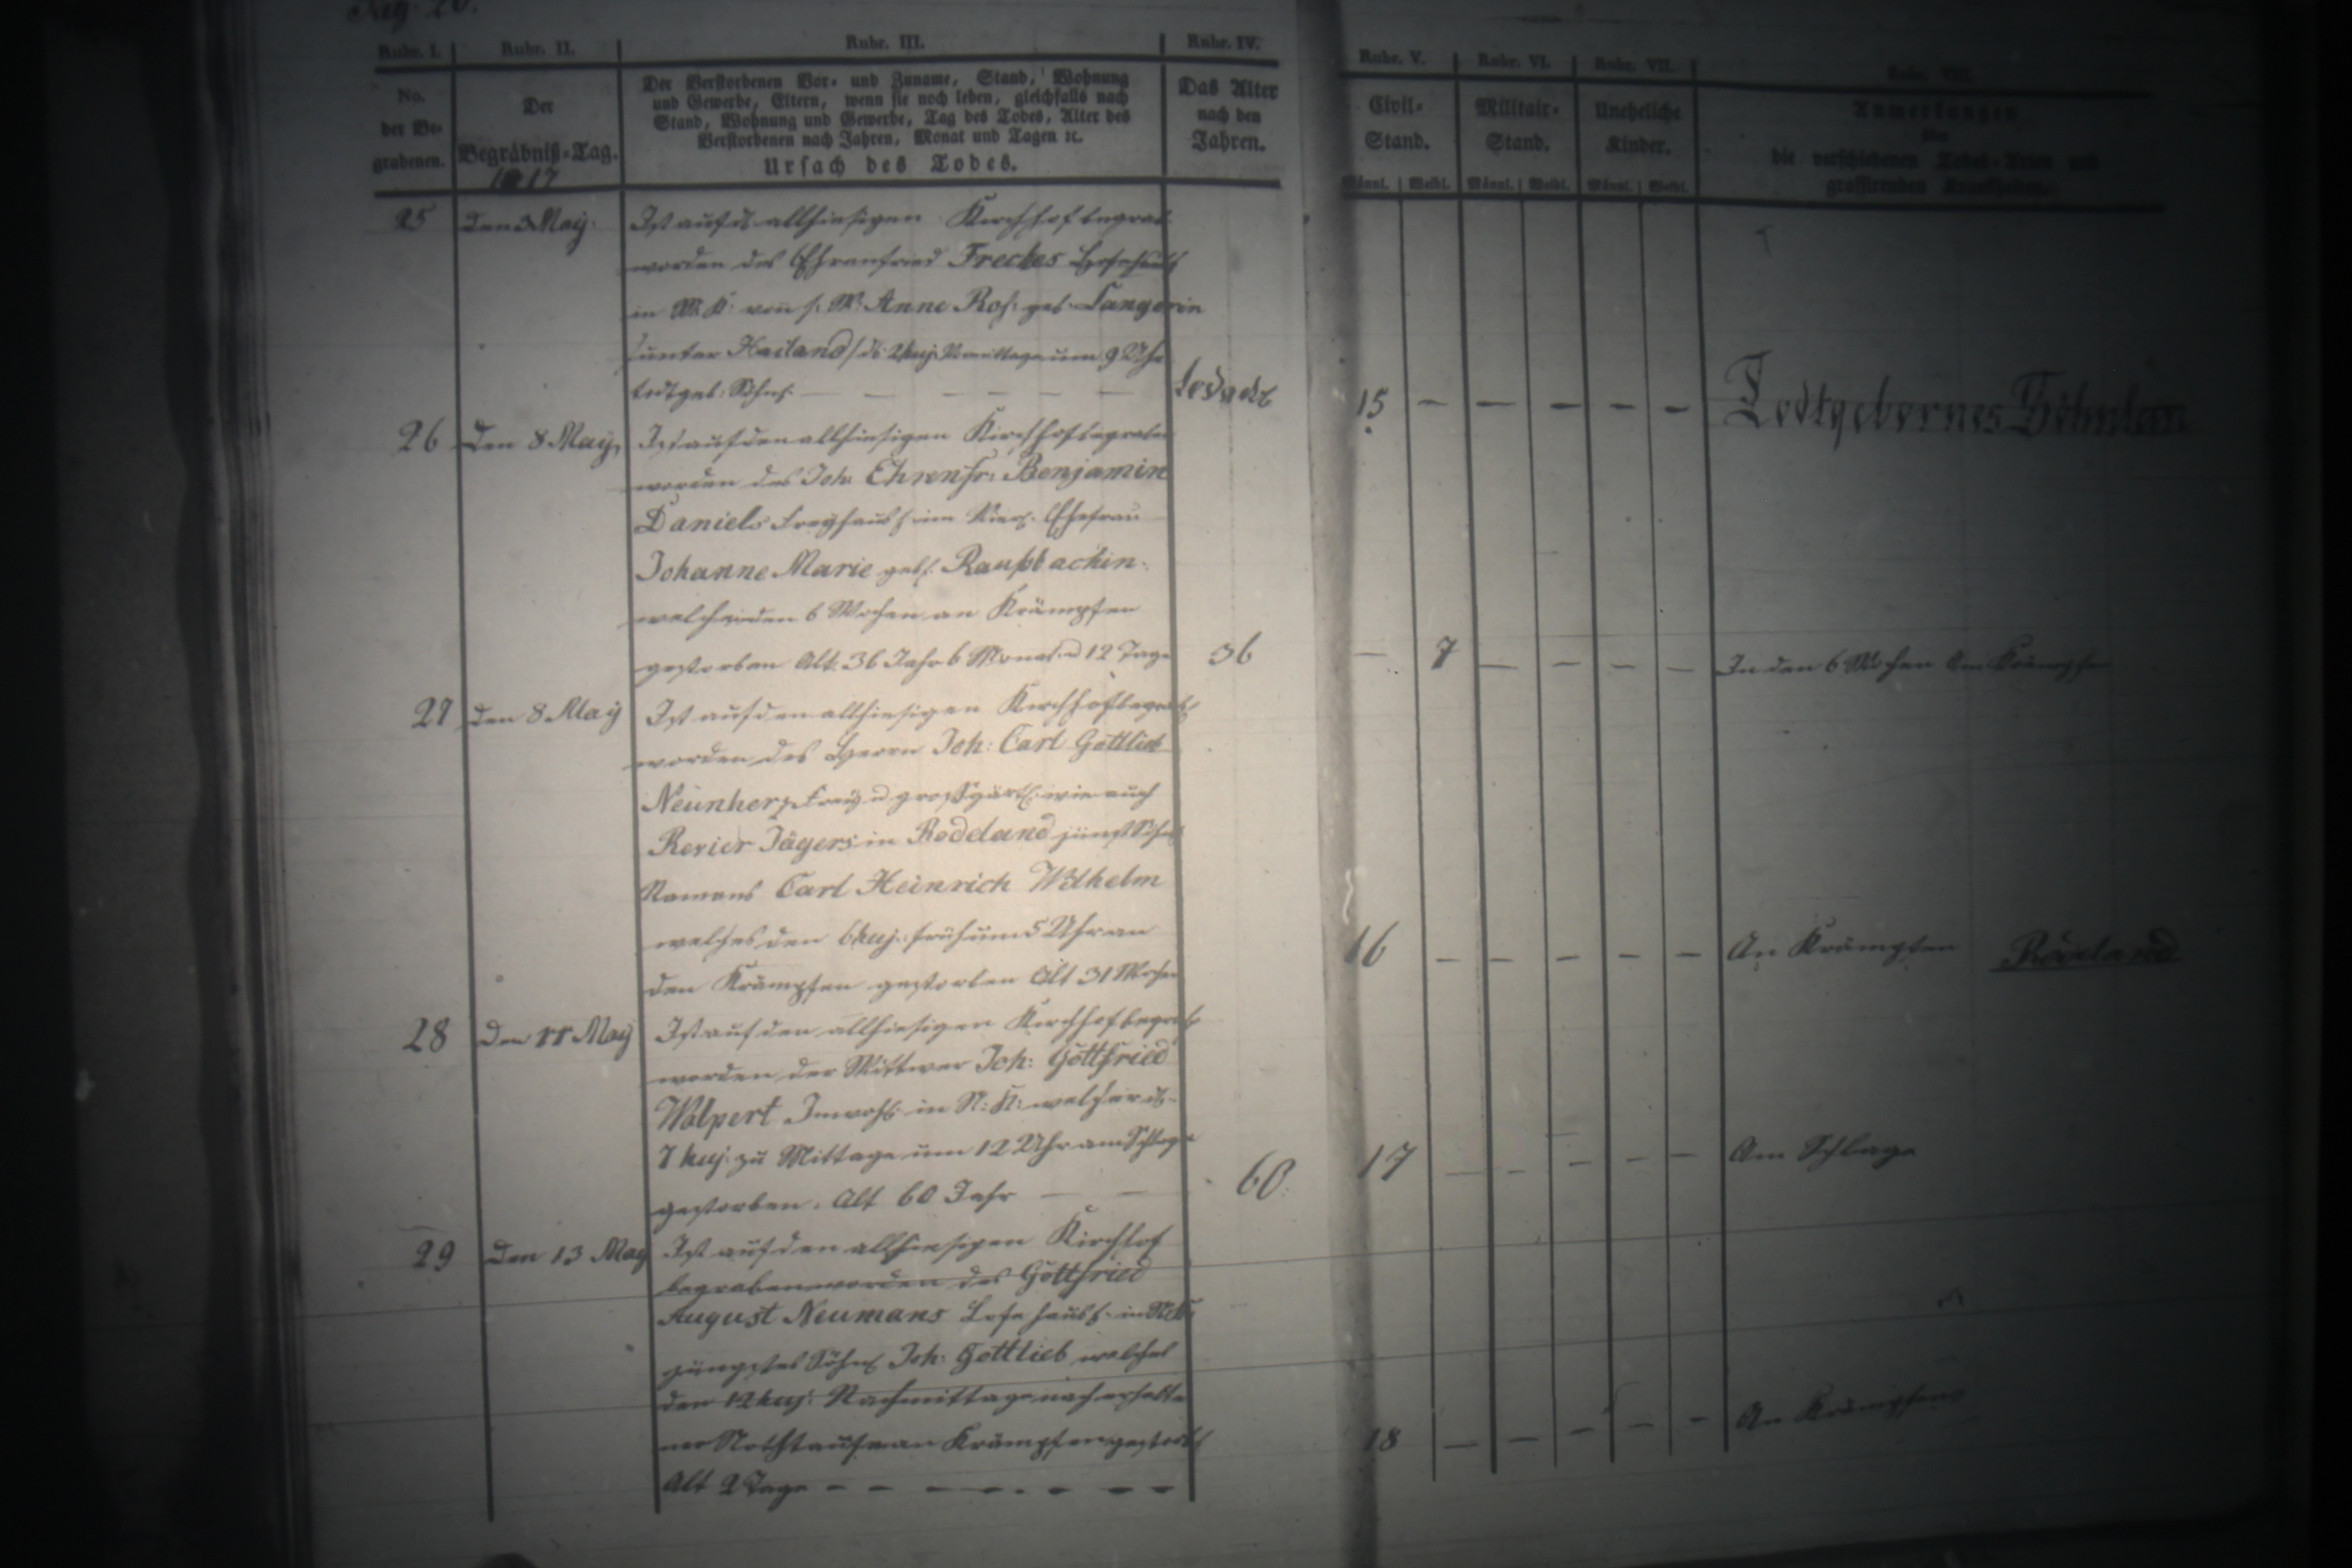 Pag. 20.
Rubr. I. Rubr. II. Rubr. III. Rubr. IV. Rubr. V. Rubr. VI. Rubr. VII. Rubr. VIII.
No. der Be- grabenen.
Der Begräbniß-Tag.
1817
Der Verstorbenen Vor- und Zuname, Stand, Wohnung
und Gewerbe, Eltern, wenn sie noch leben, gleichfalls nach
Stand, Wohnung und Gewerbe, Tag des Todes, Alter des
Verstorbenen nach Jahren, Monat und Tagen ꝛc.
Ursach des Todes.
Das Alter
nach den
Jahren.
Civil-
Stand.
Militair-
Stand.
Uneheliche
Kinder.
Anmerkungen
über
die verschiedenen Todes-Arten und
grassirenden Krankheiten.
Männl. Weibl. Männl. Weibl. Männl. Weibl.
25 Den 3 May. Ist auf d allhiesigen Kirchhof begrab.
worden des Ehrenfried Freches
in von s. W. Anne Ros. geb. Langerin
9 Uhr
todtgeb: Söhnl. — — — — — 15 — — — — — Todtgebornes Söhnlein
26 Den 8 May, Ist auf den allhiesigen Kirchhof begraben
worden des Joh: Ehrenfr: Benjamin
Daniels Freyhäusl. im Ehefrau
Johanne Marie geb. Raußbachin.
welche in den 6 Wochen an Krämpfen
gestorben Alt. 36 Jahr 6 Monat u 12 Tage 36 — 7 — — — — In den 6 Wochen Am Krämpfe
27 Den 8 May Ist auf den allhiesigen Kirchhof begrab
worden des Herrn Joh: Carl Gottlieb
Neunherz Frey u großgärtl. wie auch
Revier Jägers in Rodeland jüngst Söhnl
Namens Carl Heinrich Wilhelm
welches den 6 huj. früh um 5 Uhr an
den Krämpfen gestorben Alt 31 Wochen 16 — — — — — An Krämpfen Rodeland
28 Den 11 May Ist auf den allhiesigen Kirchhof begrab
worden der Wittwer Joh: Gottfried
Wolpert Inwohl. in N: K: welcher d.
7 huj. zu Mittage um 12 Uhr am Schlage
gestorben. Alt 60 Jahr — — 60. 17 — — — — — Am Schlage
29 Den 13 May Ist auf den allhiesigen Kirchhof
begraben worden des Gottfried
August Neumans Losehäusl. in
jüngstes Söhnl Joh: Gottlieb welches
den 12 huj: Nachmittage nach erhalte
ner Nothtaufe an Krämpfen gestorb
Alt 2 Tage — — — — — — — 18 — — — — — An Krämpfen